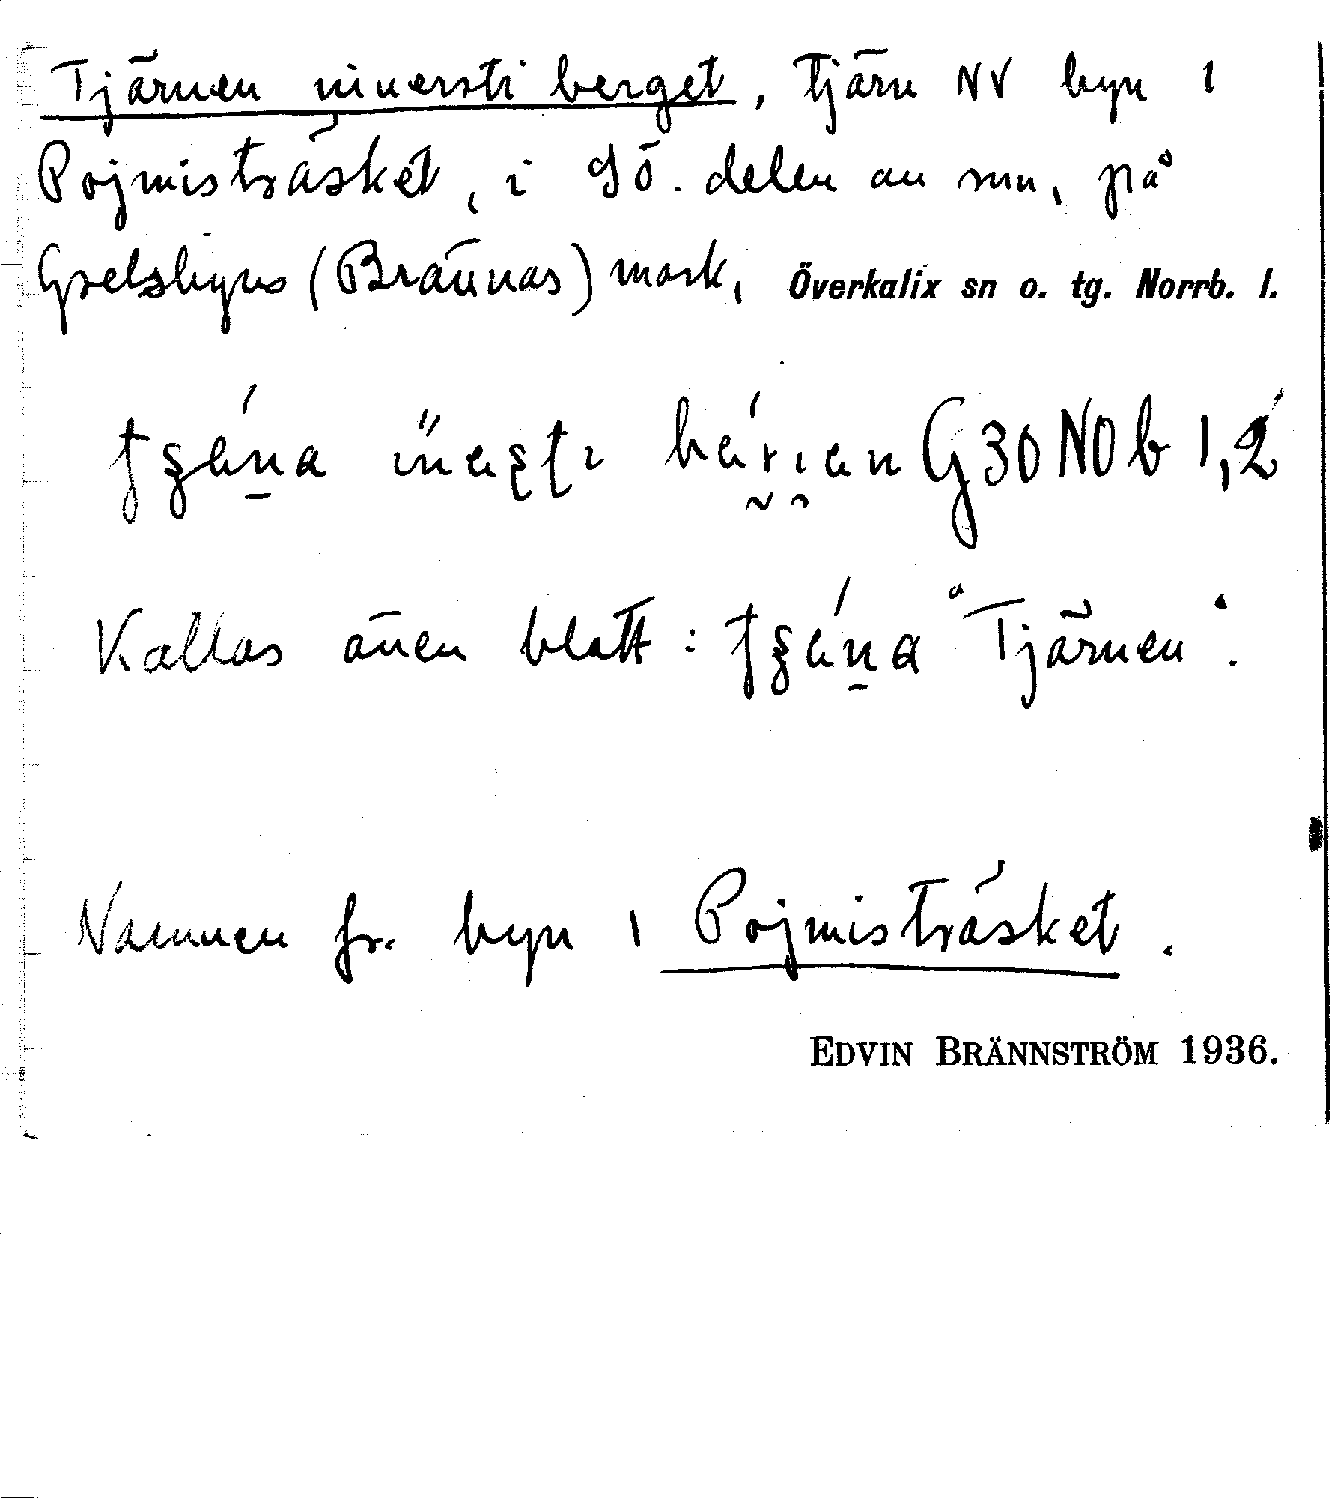 Tjärnen innersti berget, tjärn NV byn i
Pojmisträsket, i SÖ. delen av sn, på
Grelsbyns (Brännas) mark, Överkalix sn o. tg. Norrb. l.
G 30 NO b 1,2
Kallas även blott: "Tjärnen".
Namnen fr. byn i Pojmisträsket.
EDVIN BRÄNNSTRÖM 1936.